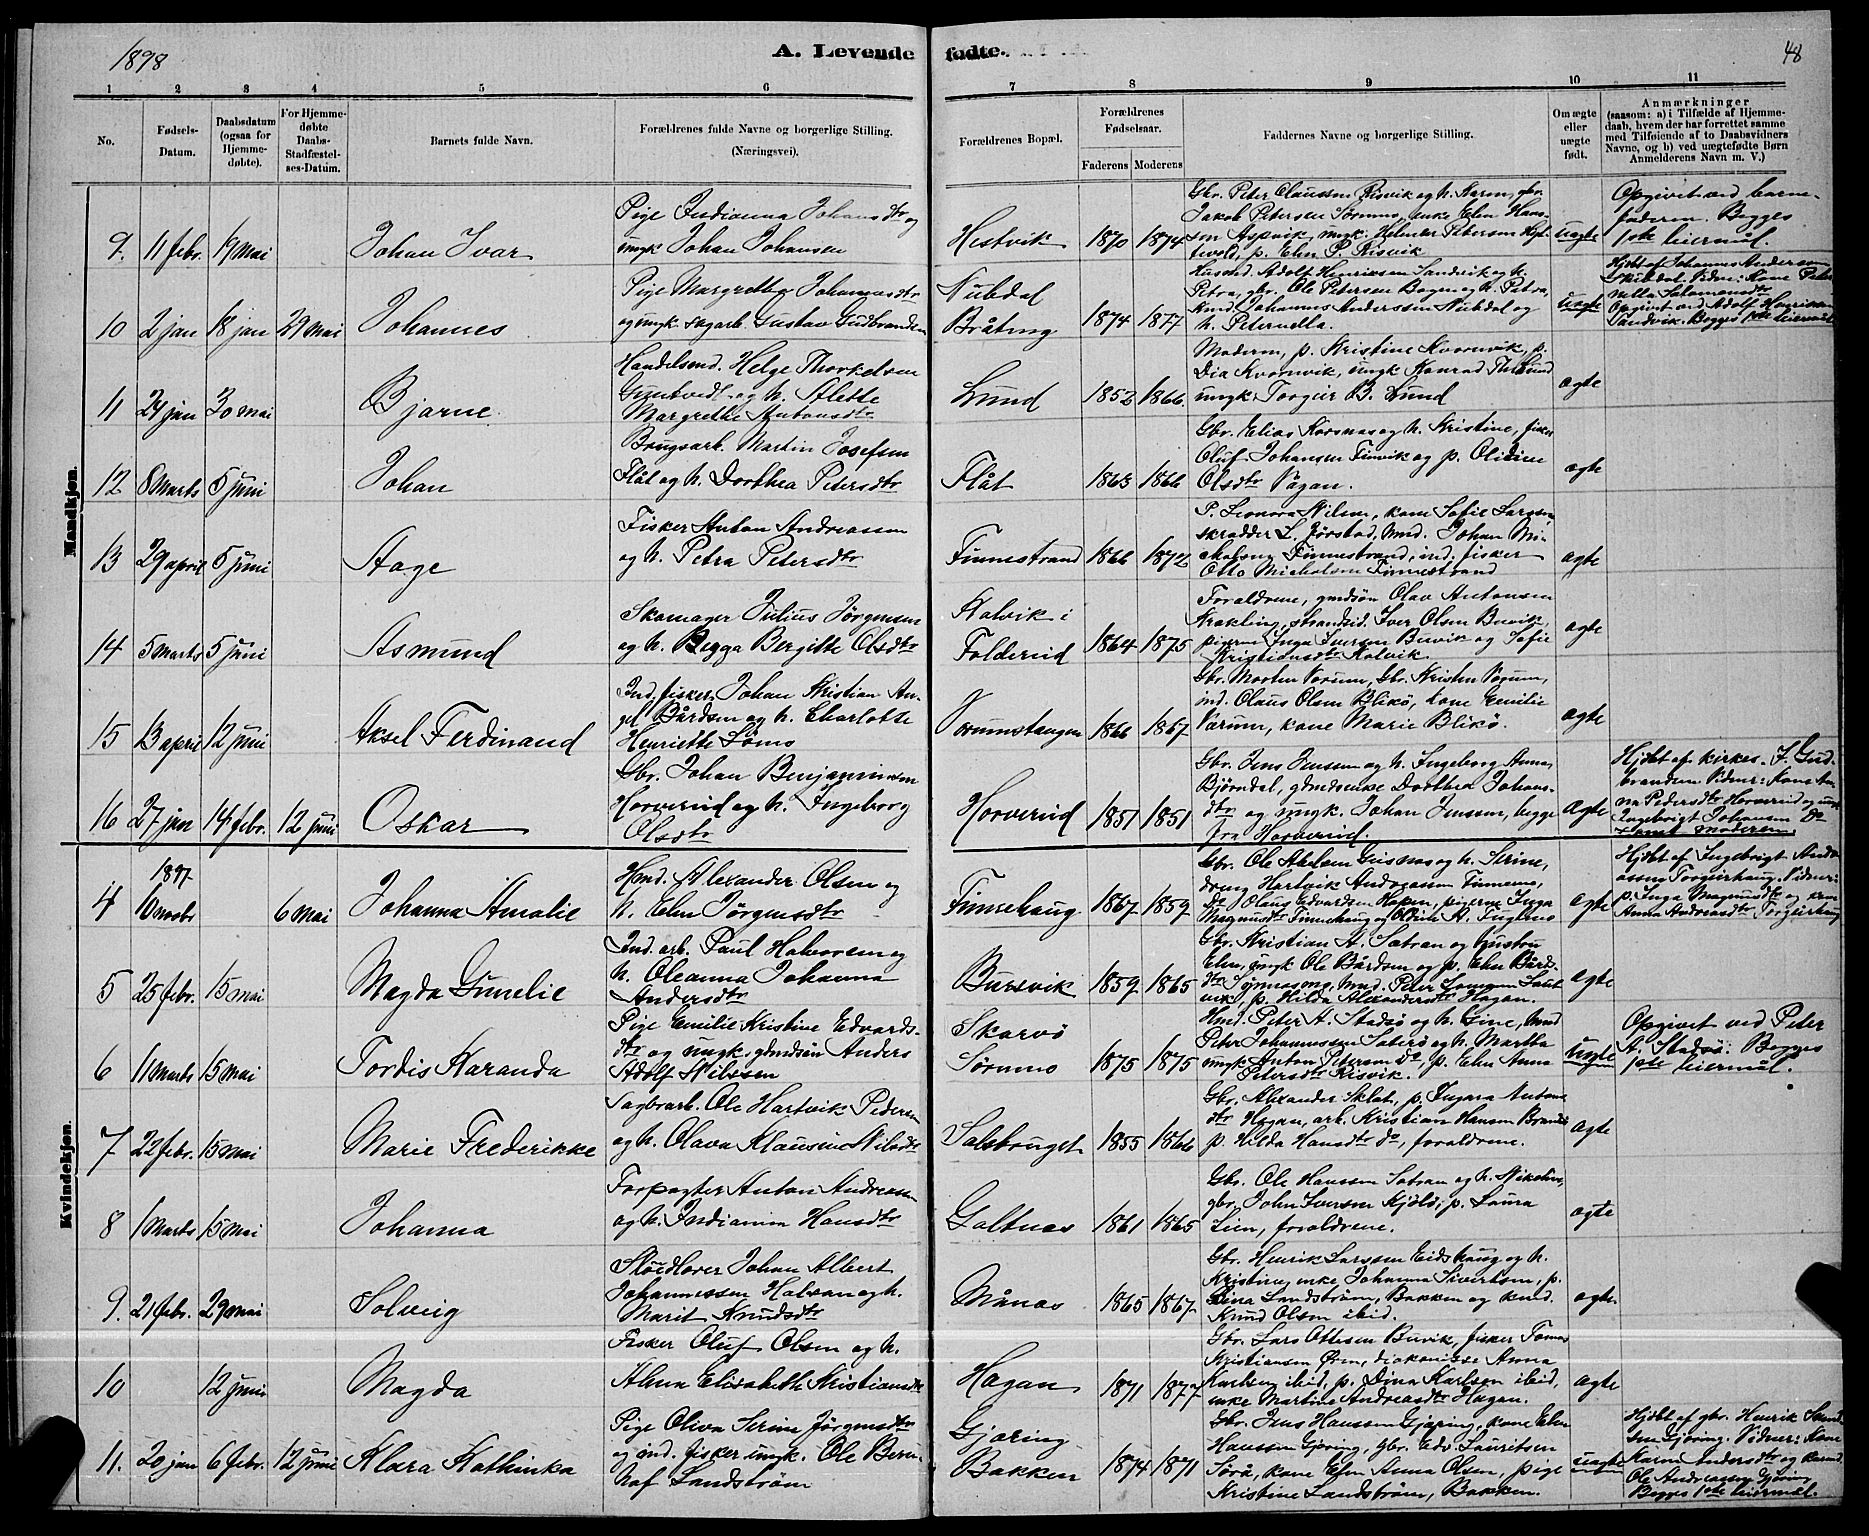 1898
A. Levende fødte.
48
1 2 3 4 5 6 7 8 9 10 11
No.
Fødsels-Datum.
Daabsdatum (ogsaa for Hjemme-døbte).
For Hjemme-døbte Daabs-Stadfæstel-ses-Datum.
Barnets fulde Navn.
Forældrenes fulde Navne og borgerlige Stilling. (Næringsvei).
Forældrenes Bopæl.
Forældrenes Fødselsaar.
Faderens Moderens
Faddernes Navne og borgerlige Stilling.
Om ægte eller uægte født.
Anmærkninger
(saasom: a) i Tilfælde af Hjemme-
daab, hvem der har forrettet samme
med Tilføiende af to Daabsvidners
Navne, og b) ved uægtefødte Børn
Anmelderens Navn m. V.)
Mandkjøn.
9. 11 febr. 19 mai
Johan Ivar
Pige Indianna Johansdtr og
ungk Johan Johansen
Hestvik
1870 1874
Gbr. Peter Claussen Risvik og h. Karen, gbr.
Jakob Petersen Sørmmo, enke Elen Hans-
sen Aspvik, ungk.
p. Elen P. Risvik
uægte
Opgivet ved barne-
faderen. Begges
1ste leiermål.
10 2 jan 18 jan 29 mai
Johannes
Pige Margrethe Johannesdtr
og ungk. sagarb. Gustav Gudbrandsen
Nubdal
Bråtrng
1874 1877
Husmd. Adolf Henriksen Sandvik og h.
Petra, gbr. Ole Petersen Bogen og h. Petra,
Kmd. Johannes Anderssen Nubdal og
h. Peternella.
uægte
Hjdbt af Johannes Andersen
Vidner: Kone Peter
nella Salamonsdtr
Opgivet ved Adolf Henriksen
Sandvik. Begges 1ste leiermål
11 24 jan 30 mai
Bjarne
Handelsmd. Helge Thorkelsen
og h. Alette
Margrethe Antonsdtr
Lund
1852 1866.
Moderen, p. Kristine Kvornvik, p.
Dia Kvornvik, ungk Konrad
ungk. Torgeir B. Lund
ægte
12 8 marts 5 juni
Johan
Brugsarb. Martin Josefsen
Flåt og h. Dorthea Petersdtr
Flåt
1863 1866
Gbr. Elias Korsnæs og h. Kristine, fisker
Oluf Johansen Finvik og p. Olidine
Olsdtr Vågan.
ægte
13 29 april 5 juni
Aage
Fisker Anton Andreassen
og h. Petra Petersdtr
Finnestrand
1866 1872
P. Leonora Nilsen, kone Sofie Larssen,
skrædder L. Jørstad, kmd. Johan Mi-
kalsen Finnestrand, ind. fisker
Otto Mickalsen Finnestrand
ægte
14 5 marts 5 juni
Asmund
Skomager Julius Jørgensen
og h. Begga Bergitte Olsdtr
Kalvik i
Foldereid
1864 1875
Forældrene, gmdsøn Olav Antonsen
Krækling, strandsid. Iver Olsen Buvik,
pigerne Inga Iversen Buvik og Sofie
Kristiansdtr Kalvik.
ægte
15 13 april 12 juni
Aksel Ferdinand
Ind. fisker Johan Kristian An-
gel Bårdsen og h. Charlotte
Henriette Lømo
Vorumstangen
1866 1867
Gbr. Morten Vorum, Gbr. Kristen Vorum,
ind. Olaus Olsen Blikø, kone Emilie
Vorum, kone Marie Blikø.
ægte
16 27 jan 14 febr. 12 juni
Oskar
Gbr. Johan Benjaminsen
Horvereid og h. Ingeborg
Olsdtr
Horvereid
1851 1851
Gbr. Jens Jensen og h. Ingeborg Anna
Bjørndal, gårdsenke Dorthea Johans-
dtr og ungk. Johan Jenssen, begge
fra Horvereid.
ægte
Hjdbt af kirkes. J. Gud-
brandsen Vidner: Kone An-
na Pedersdtr Horvereid og ungk
Ingebrigt Johansen Do
samt moderen.
Kvindekjøn.
1897
4 10 novbr 6 mai
Johanna Amalie
Hmd. Alexander Olsen og
h. Elen Jørgensdtr
Finnehaug
1867 1859
Gbr. Ole Abelsen Grisnæs og h. Serine,
dreng Hartvik Andreassen Finnemo,
Do Olaus Edvardsen Hopen, pigerne Inga
Magnusdtr Finnehaug og
ægte
Hjdbt af Ingebrigt Andre-
assen Torgeirhaug. Vidner:
p. Inga Magnusdtr og kone
Anna Andreasdtr Torgeirhaug
5 25 febr. 15 mai
Magda Gunelie
Ind. arb. Paul Halvorsen og
h. Oleanna Johanna
Andersdtr
Bursvik
1859 1865
Gbr. Kristian A. Sætran og hustru
Elen, ungk Ole Bårdsen og p. Elen Bårds-
dtr kmd. Peter
vik, p. Hilda Alexandersdtr Hagan.
ægte
6 11 marts 15 mai
Tordis Karanda
Pige Emilie Kristine Edvards-
dtr og ungk, gmdsøn Anders
Adolf Nilssen
Skarvø
Sørmmo
1875 1875
Hmd. Peter A. Stadsø og h. Line, kmd
Peter Johannessen Saterø og h. Martha
ungk Anton Petersen Do, p. Elen Anna
Petersdtr Risvik.
uægte
Opgivet ved Peter
A. Stadsø: Begges
1ste leiermål.
7 22 febr. 15 mai
Marie Frederikke
Sagbrarb. Ole Hartvik Pedersen
og h. Olava Klausine Nilsdtr
Salsbruget
1855 1866
Gbr. Alexander Sklæt, p. Ingara Antons
dtr Hagan, arb. Kristian Hansen
p. Hilda Hansdtr do, forældrene.
ægte
8 1 marts 15 mai
Johanna
Forpagter Anton Andreassen
og h. Indianna Hansdtr
Galtnæs
1861 1865
Gbr. Ole Hanssen Sætran og h. Nikoline,
gbr. John Iversen Kjølø, p. Laura
Lien, forældrene.
ægte
9. 21 febr. 29 mai
Solveig
Sløidlærer Johan Albert
Johannessen Halvan og h.
Marit Knudsdtr
Månæs
1865 1867
Gbr. Henrik Larssen Eidshaug og h.
Kristine, enke Johanna Sivertsen, p.
Lina Landstrøm, Bakken og kmd.
Knud Olsen ibid.
ægte.
10 12 juni
Magda
Fisker Oluf Olsen og h.
Alma Elisabeth Kristiansdtr
Hagan
1871 1877
Gbr. Lars Ottesen Buvik, fisker Tomas
Kristiansen Øren, diakonisse Anna
Karlsen ibid, p. Dina Karlsen ibid,
enke Martine Andreasdtr Hagan.
ægte
11. 20 jan 6 febr. 12 juni
Klara Kathinka
Pige Oliva Serine Jørgensdtr
og ind. fisker ungk. Ole Bern-
haf Landstrøm
Gjæring
Bakken
1874 1871
Gbr. Jens Hanssen Gjæring, kone Elen
Hanssen Gjæring, gbr. Edv. Lauritsen
Sørå, kone Elen Anna Olsen, pige
Kristine Landstrøm, Bakken.
uægte
Hjdbt af gbr. Henrik
sen Gjæring. Vidner: Kone
Karen Andersdtr og kårmd.
Ole Andreassen Gjæring
Begges 1ste leiermål.